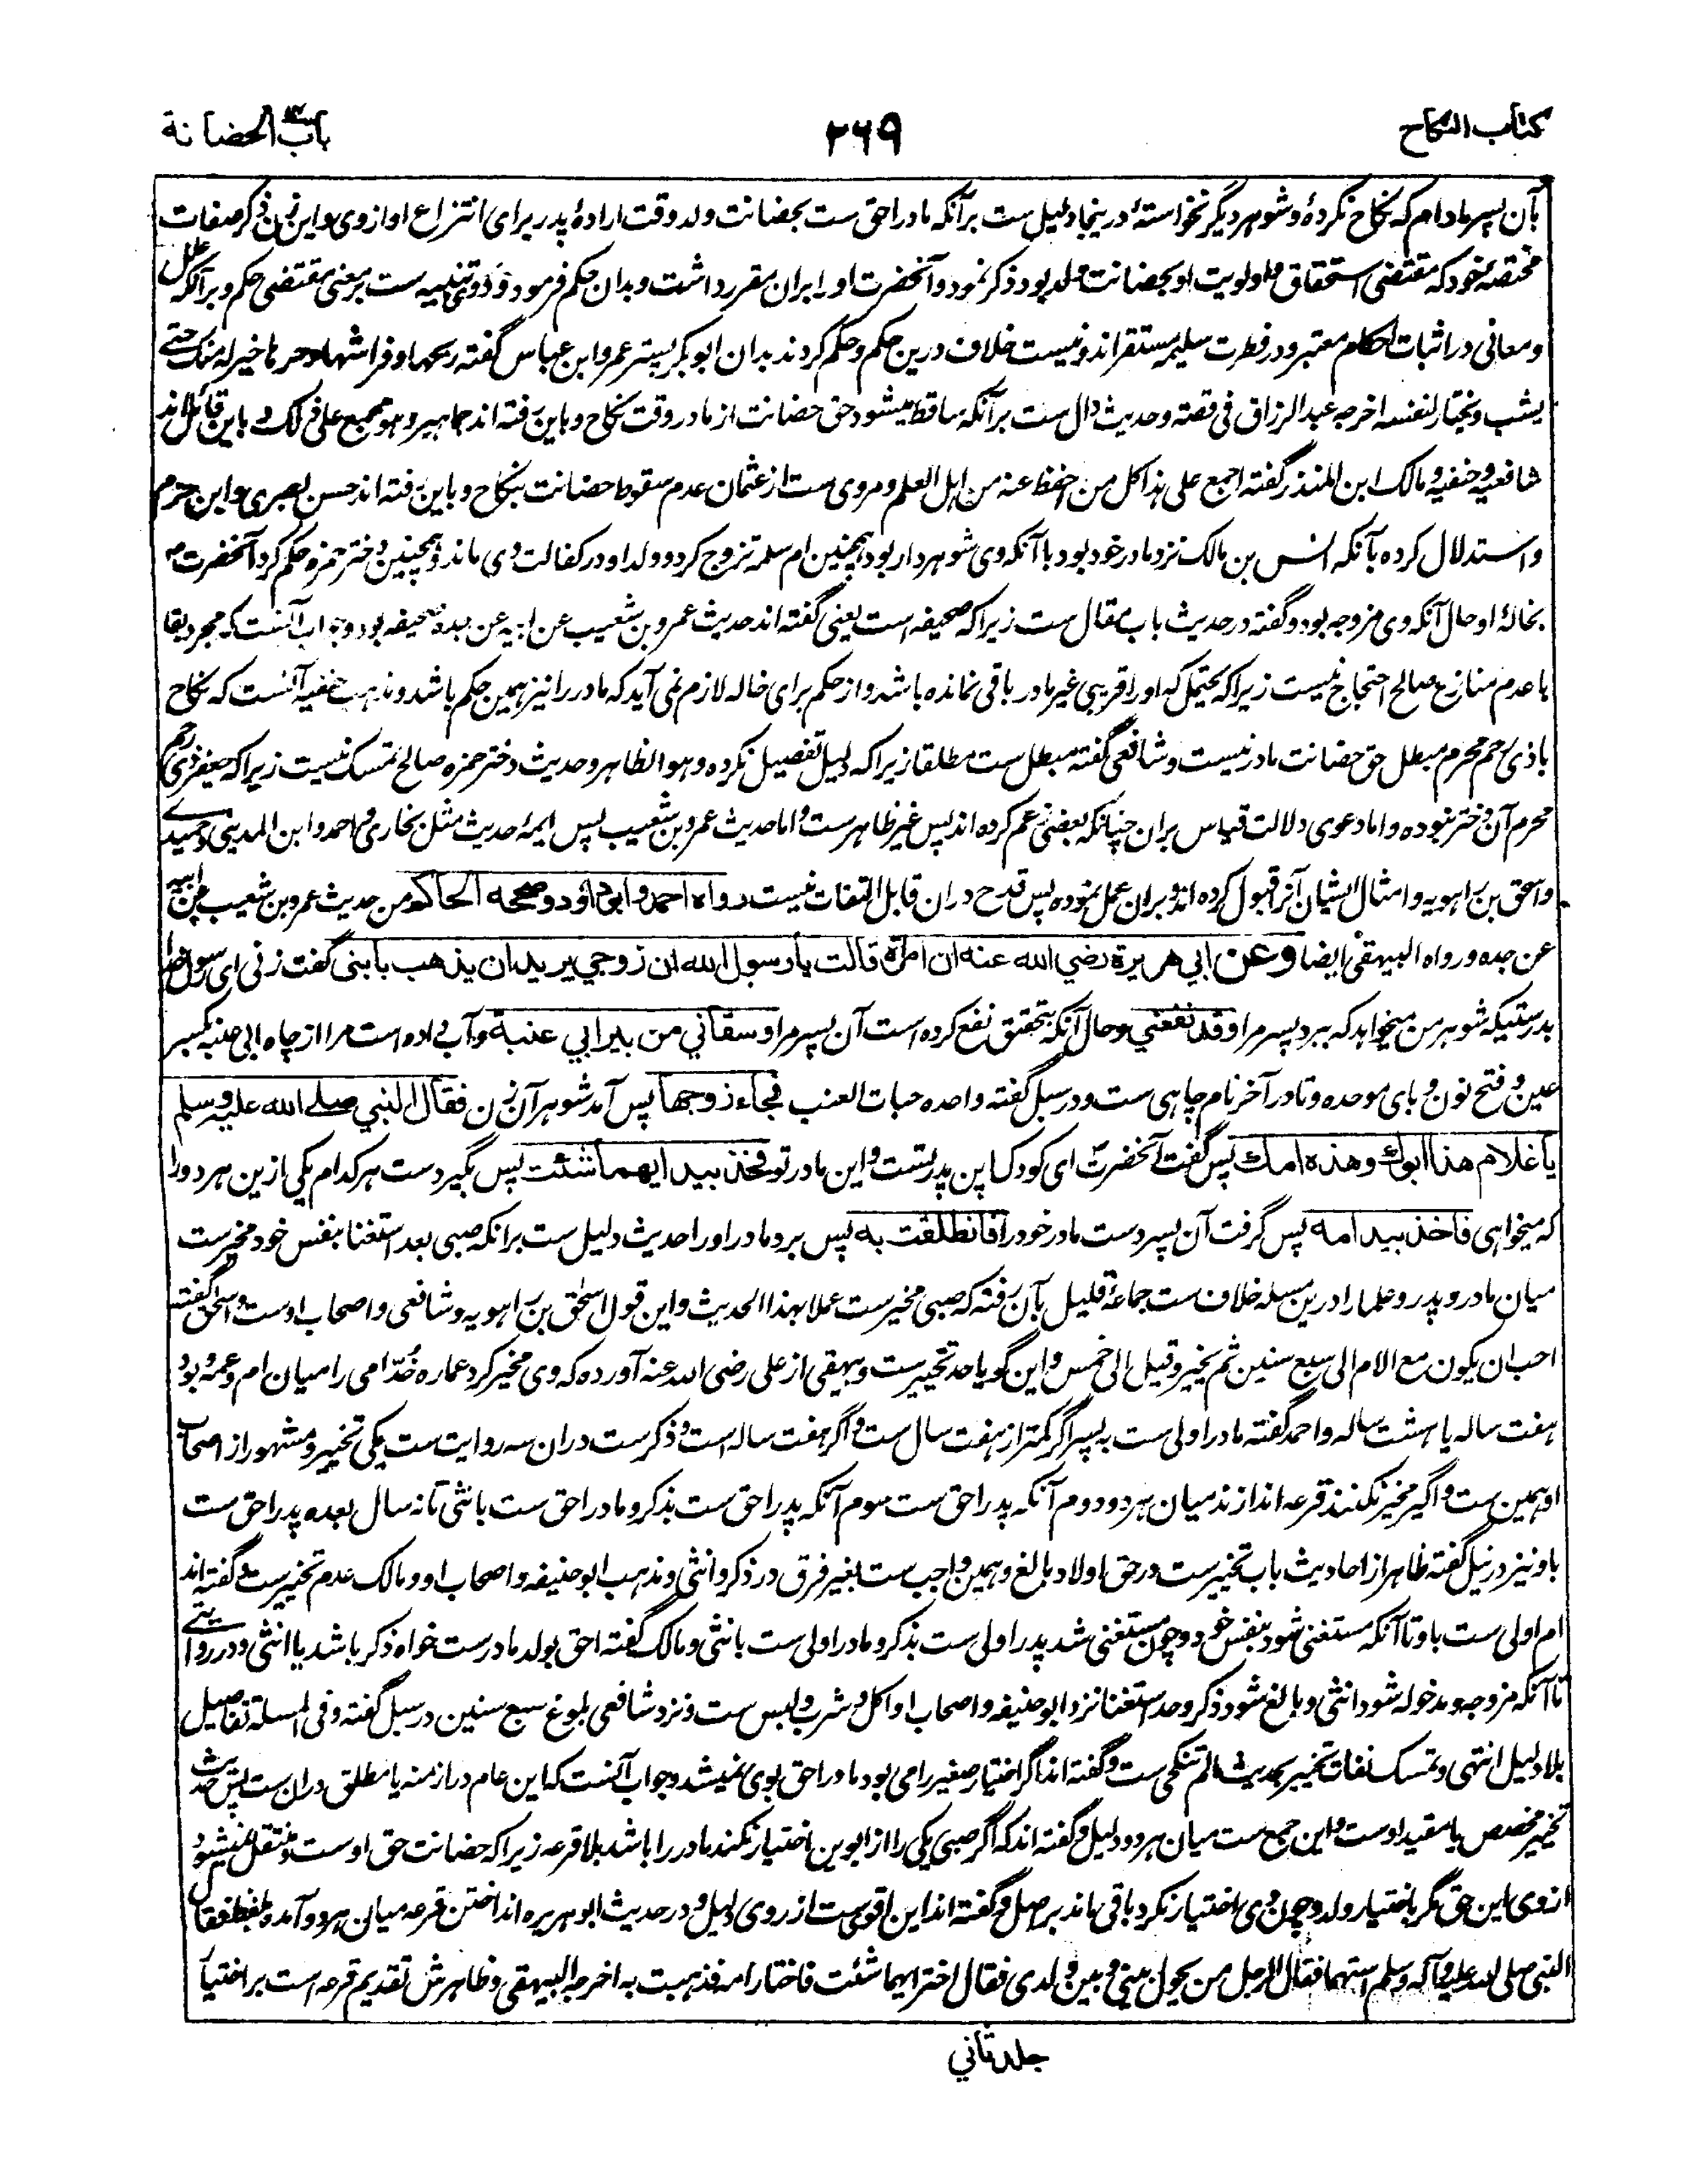 كتاب النكاح
۲۶۹
باب الحضانة
بآن پسر مادام که نکاح نکردهٔ و شوهر دیگر نخواستهٔ درینجا دلیل ست برآنکه مادر احق ست بحضانت ولد وقت ارادهٔ پدر برای انتزاع او ازوی و این زن ذکر صفات
مختصهٔ خود که مقتضی استحقاق و اولویت او بحضانت ولد بود ذکر نمود و آنحضرت او را بران مقرر داشت و بدان حکم فرمود و دروی تنبیه ست بر معنی مقتضی حکم و برآنکه علل
و معانی در اثبات احکام معتبر و در فطرت سلیمه مستقر اند و نیست خلاف درین حکم و حکم کردند بدان ابوبکر پستر عمر و ابن عباس گفته ریحها و فراشها و حرها خیر له منک حتے
یشب و یختار لنفسه اخرجه عبد الرزاق فی قصته و حدیث دال ست برآنکه ساقط میشود حق حضانت از مادر وقت نکاح و باین رفته اند جماهیر و هو مجمع علی ذلک و باین قائل اند
شافعیه و حنفیه و مالک ابن المنذر گفته اجمع علی هذا کل من احفظ عنه من اهل العلم و مروی ست از عثمان عدم سقوط حضانت بنکاح و باین رفته اند حسن بصری و ابن حزم
و استدلال کرده بآنکه انس بن مالک نزد مادر خود بود با آنکه وی شوهردار بود همچنین ام سلمه تزوج کرد و ولد او در کفالت وی ماند و همچنین دختر حمزه حکم کرد آنحضرت م
بخالهٔ او حال آنکه وی مزوجه بود و گفته در حدیث باب مقال ست زیراکه صحیفه است یعنی گفته اند حدیث عمرو بن شعیب عن ابیه عن جده صحیفه بود و جواب آنست که مجرد بقا
با عدم منازع صالح احتجاج نیست زیراکه یحتمل که او را قریبی غیر مادر باقی نمانده باشد و از حکم برای خاله لازم نمی آید که مادر را نیز همین حکم باشد و مذهب حنفیه آنست که نکاح
باذی رحم محرم مبطل حق حضانت مادر نیست و شافعی گفته مبطل ست مطلقا زیراکه دلیل تفصیل نکرده و هو الظاهر و حدیث دختر حمزه صالح تمسک نیست زیراکه جعفر ذی رحم
محرم آن دختر نبوده و اما دعوی دلالت قیاس بران چنانکه بعضی زعم کرده اند پس غیر ظاهر ست و اما حدیث عمرو بن شعیب پس ایمهٔ حدیث مثل بخاری و احمد و ابن المدینی و حمیدے
و اسحق بن راهویه و امثال ایشان آنرا قبول کرده اند و بران عمل نموده پس قدح دران قابل التفات نیست رواه احمد وابو داؤد وصححه الحاكم من حدیث عمرو بن شعیب عن ابیه
عن جده و رواه البیهقی ایضا وعن ابي هريرة رضي الله عنه ان امرأة قالت يا رسول الله ان زوجي يريد ان يذهب بابني گفت زنی ای رسول خدا
بدرستیکه شوهر من میخواهد که ببرد پسر مرا وقد نفعني و حال آنکه بتحقیق نفع کرده است آن پسر مرا وسقاني من بير ابي عنبة و آب داده است مرا از چاه ابی عنبه بکسر
عین و فتح نون و بای موحده و تا در آخر نام چاهی ست و در سبل گفته واحده حبات العنب فجاء زوجها پس آمد شوهر آن زن فقال النبي صلے الله عليه وسلم
يا غلام هذا ابوك وهذه امك پس گفت آنحضرت ای کودک این پدر تست و این مادر تو فخذ بيد ايهما شئت پس بگیر دست هر کدام یکی ازین هر دو را
که میخواهی فاخذ بيد امه پس گرفت آن پسر دست مادر خود را فانطلقت به پس برد مادر او را حدیث دلیل ست برانکه صبی بعد استغنا بنفس خود مخیر ست
میان مادر و پدر و علما را درین مسئله خلاف ست جماعهٔ قلیل بآن رفته که صبی مخیر ست عملا بهذا الحدیث و این قول اسحٰق بن راهویه و شافعی و اصحاب اوست و اسحق گفته
احب ان یکون مع الام الی سبع سنین ثم یخیر و قیل الی خمس و این گویا حد تخییر ست و بیهقی از علی رضی الله عنه آورده که وی مخیر کرد عماره جُذّامی را میان ام و عمه و بود
هفت ساله یا هشت ساله و احمد گفته مادر اولی ست به پسر اگر کمتر از هفت سال ست و اگر هفت ساله است و ذکر ست دران سه روایت ست یکی تخییر و مشهور از اصحاب
او همین ست و اگر مخیر نکنند قرعه اندازند میان هر دو دوم آنکه پدر احق ست سوم آنکه پدر احق ست بذکر و مادر احق ست بانثی تا نه سال بعده پدر احق ست
باو نیز در نیل گفته ظاهر از احادیث باب تخییر ست در حق اولاد بالغ و همین واجب ست بغیر فرق در ذکر و انثی و مذهب ابو حنیفه و اصحاب او و مالک عدم تخییر ست و گفته اند
ام اولی ست باو تا آنکه مستغنی شود بنفس خود و چون مستغنی شد پدر اولی ست بذکر و مادر اولی ست بانثی و مالک گفته احق بولد مادر ست خواه ذکر باشد یا انثی و در روایتے
تا آنکه مزوجه و مدخوله شود انثی و بالغ شود ذکر و حد استغنا نزد ابو حنیفه و اصحاب او اکل و شرب و لبس ست و نزد شافعی بلوغ سبع سنین در سبل گفته و فی المسئلة تفاصیل
بلا دلیل انتهی و تمسک نفات تخییر بحدیث ما لم تنکحی ست و گفته اند اگر اختیار صغیر را می بود مادر احق بوی نمیشد و جواب آنست که این عام در ازمنه یا مطلق دران ست پس حدیث
تخییر مخصص یا مقید اوست و این جمع ست میان هر دو دلیل و گفته اند که اگر صبی یکی را از ابوین اختیار نکند مادر را باشد بلا قرعه زیراکه حضانت حق اوست و منتقل نمیشود
ازوی این حق مگر باختیار ولد و چون وی اختیار نکرد باقی ماند بر اصل و گفته اند این اقوی ست از روی دلیل و در حدیث ابوهریره انداختن قرعه میان هر دو آمده بلفظ فقال
النبی صلی الله علیه و آله و سلم استهما فقال الرجل من یحول بینی و بین ولدی فقال اختر ایهما شئت فاختار امه فذهبت به اخرجه البیهقی و ظاهرش تقدیم قرعه است بر اختیار
جلد ثاني